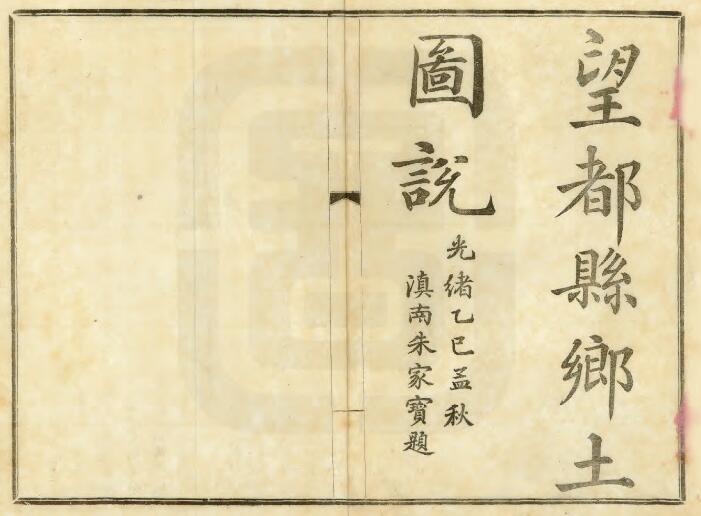 望都縣鄉土
圖說
光緒乙巳孟秋
滇南朱家寶題